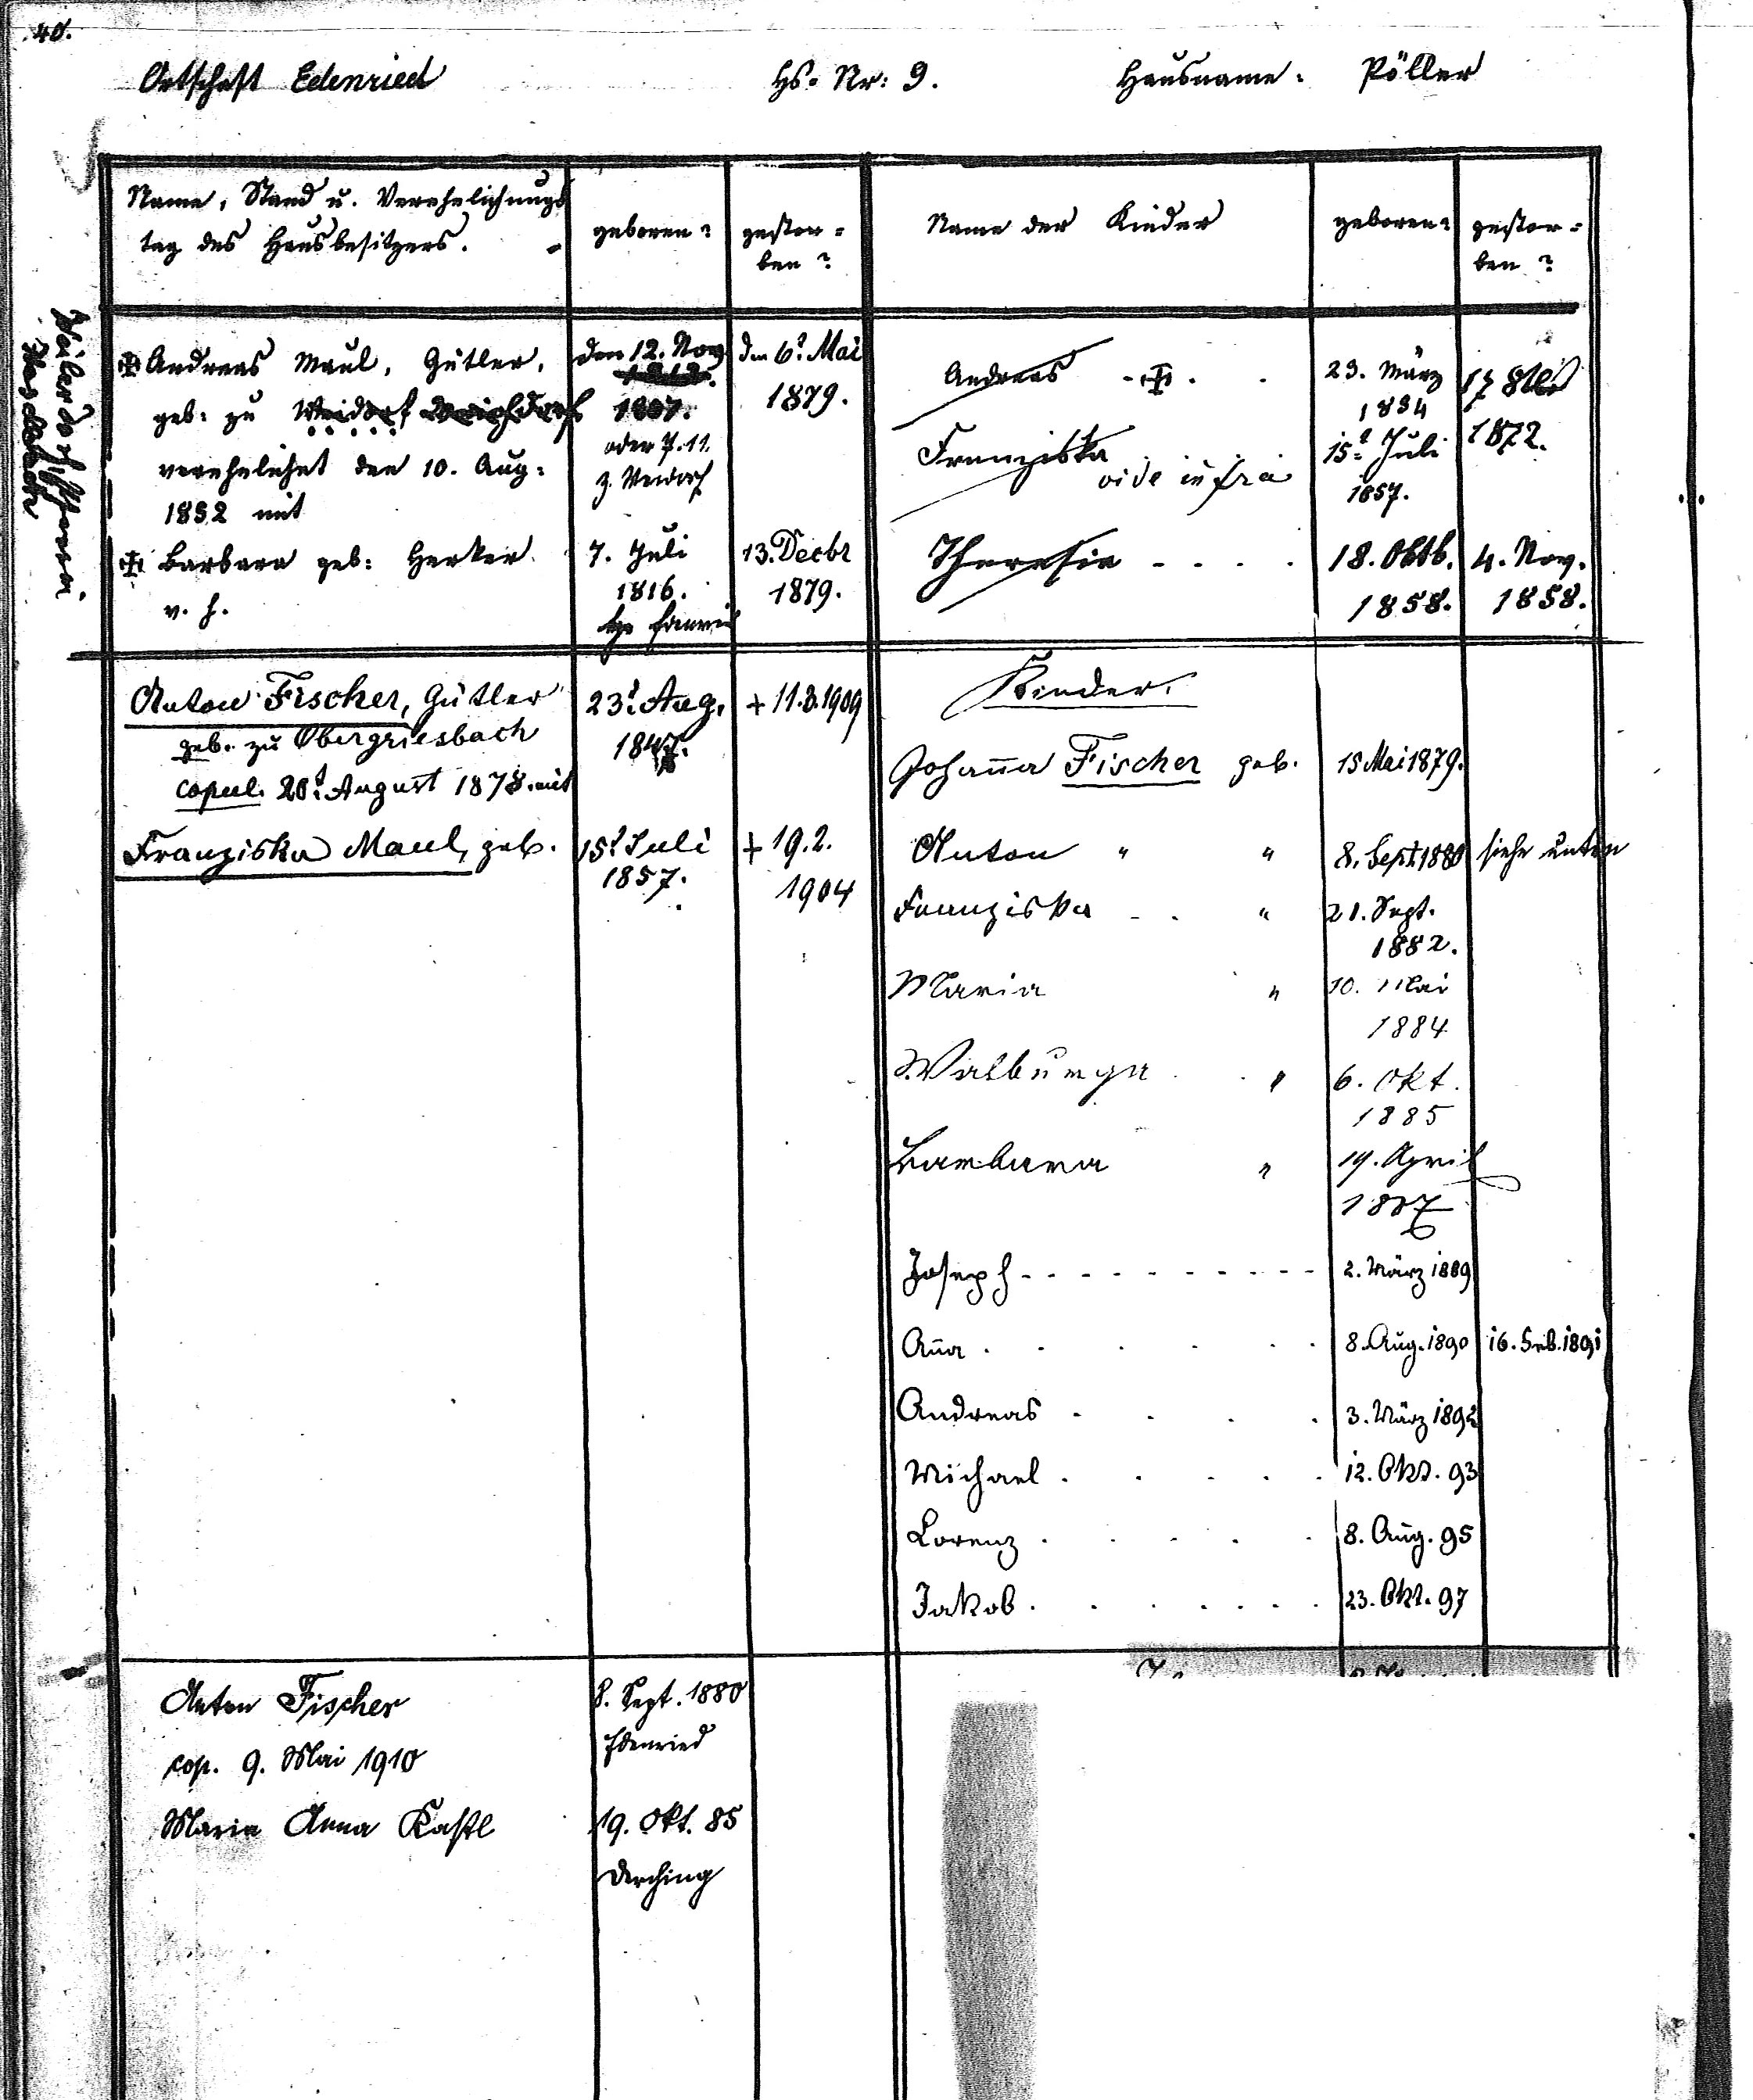 40.
Ortschaft Edenried Hs. Nr: 9. Hausname: Pöller
Name, Stand u. Verehelichungs
tag des Hausbesitzers.
geboren?
gestor=
ben?
Name der Kinder
geboren?
gestor=
ben?
Andreas Maul, Gütler,
geb: zu Weidorf
verehelichet den 10. Aug:
1852 mit
den 12. Nov
1807.
oder 7. 11.
z. Weidorf
den 6t Mai
1879.
Barbara geb: Herker
v. h.
7. Juli
1816.
13. Decbr
1879.
Andreas
23. März
1854
17 8tbr
1872.
Franziska
vide infra
15t Juli
1857.
Theresia
18. Oktb.
1858.
4. Nov.
1858.
Anton Fischer, Gütler
geb. zu Obergriesbach
copul. 20t August 1878. mit
23t Aug.
+ 11.3.1909
Franziska Maul, geb.
15t Juli
1857.
+ 19.2.
1904
Kinder.
Johanna Fischer geb. 15 Mai 1879.
Anton " " 8. Sept 1880 siehe unten
Franziska - . " 21. Sept.
1882.
Maria " 10. Mai
1884
Walburga " 6. Okt.
1885
Barbara " 19. April
1887
Joseph - - - - - - - - - - 2. März 1889
Anna . . . . . . 8. Aug. 1890 16. Feb. 1891
Andreas . . . . 3. März 1892
Michael . . . . . 12. Okt. 93
Lorenz . . . . . 8. Aug. 95
Jakob . . . . . . . 23. Okt. 97
Anton Fischer
cop. 9. Mai 1910
Maria Anna Kastl
8. Sept. 1880
Edenried
19. Okt. 85
Derching